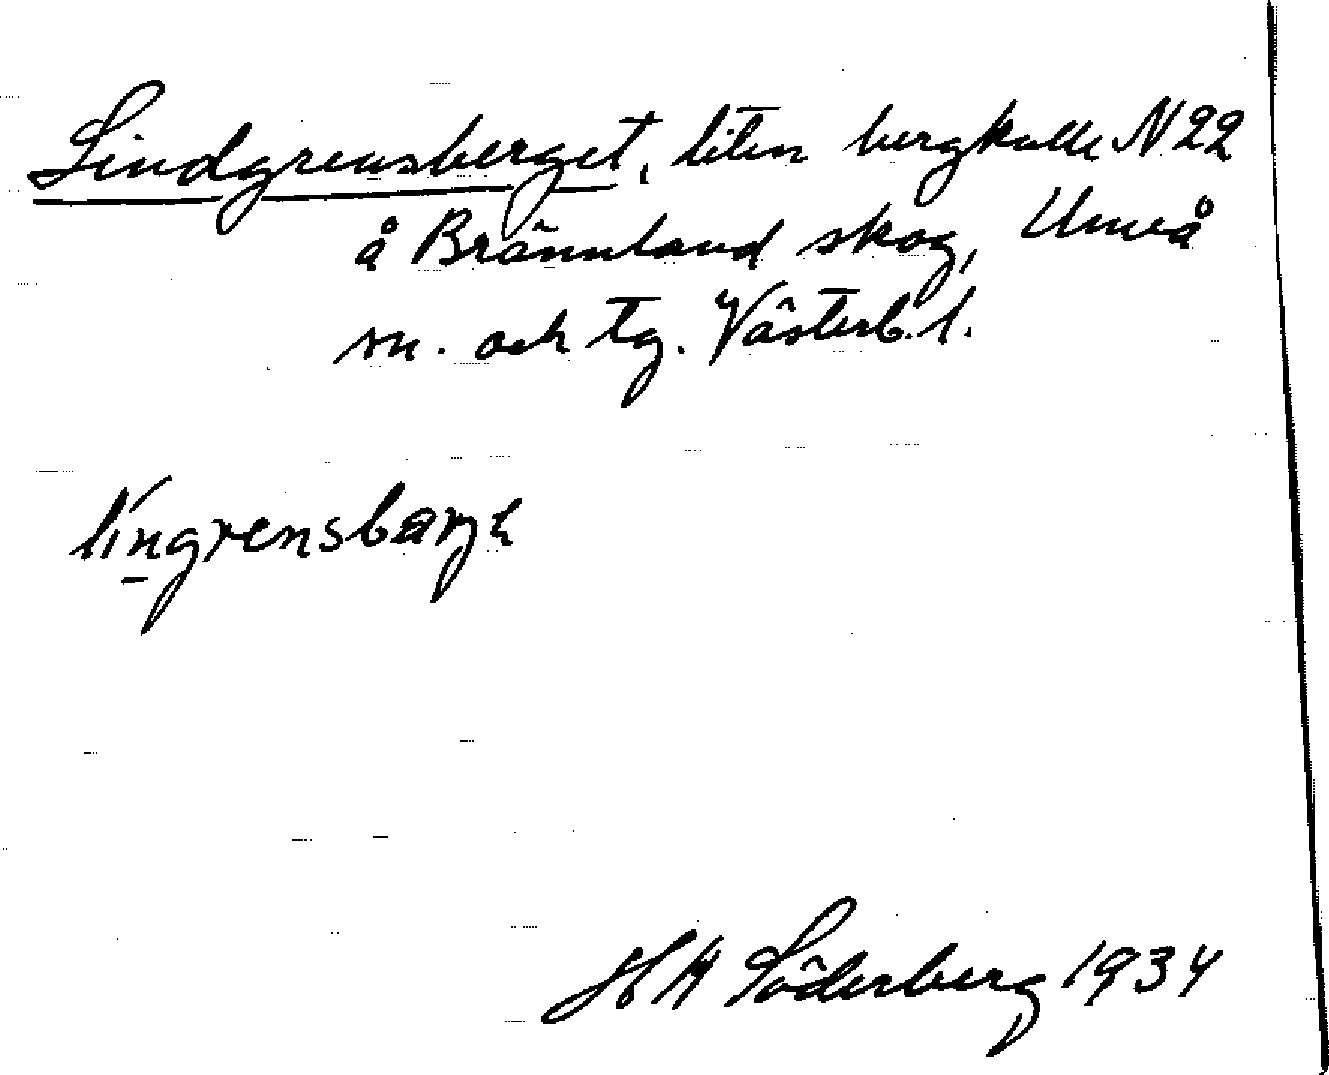 Lindgrensberget, liten bergkulle N 22
å Brännland skog, Umeå
sn. och tg. Västerb. l.
lingrensbärjt
H H Söderberg 1934